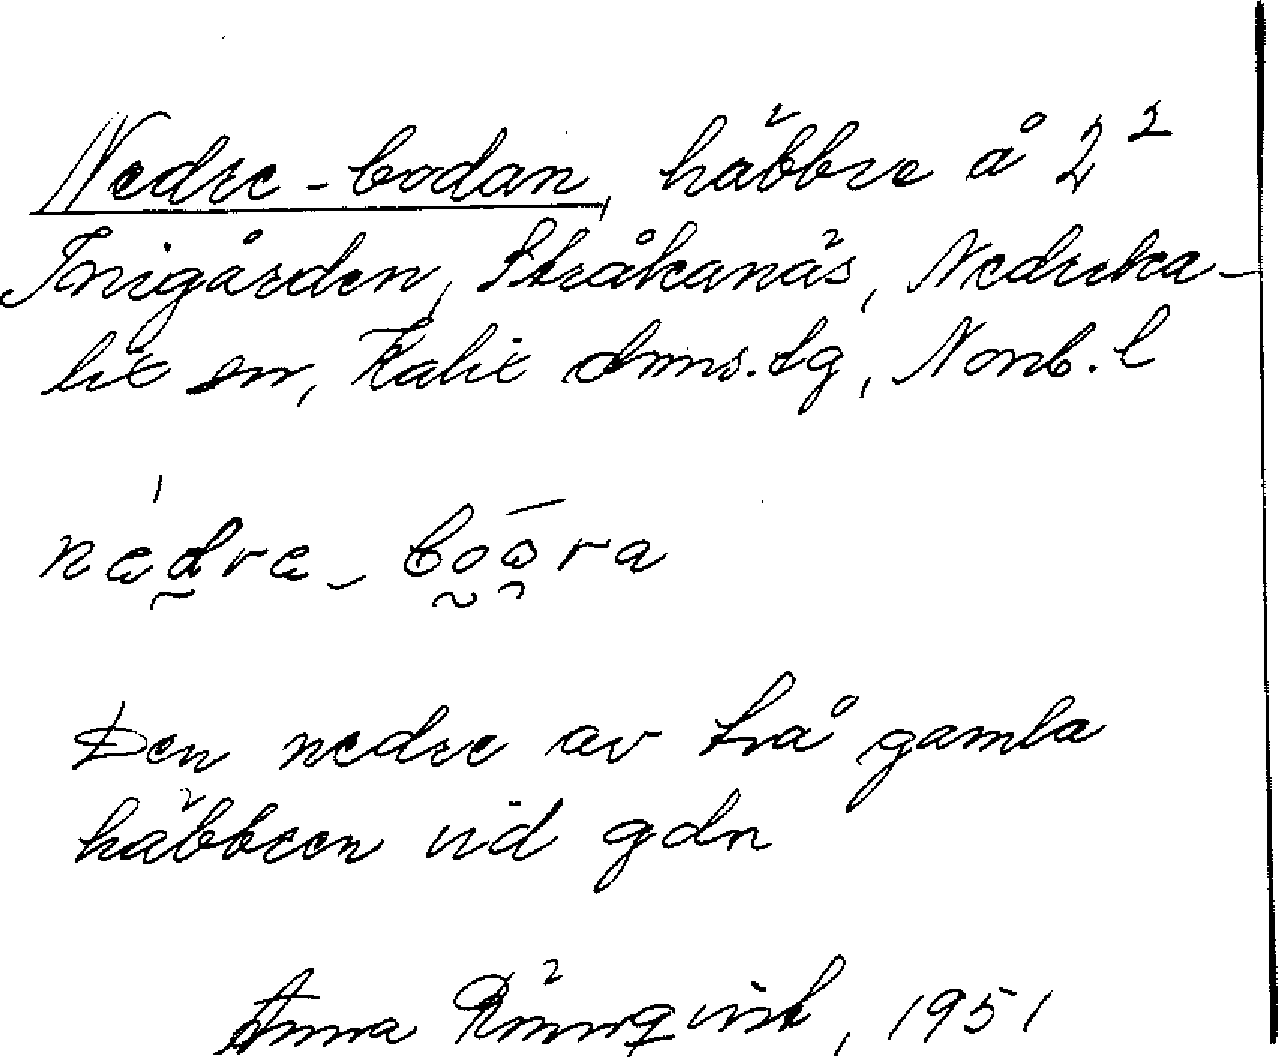 Nedre-bodan, häbbre å 2²
Tonigården, Stråkanäs, Nederka-
lix sn, Kalix dms.tg, Norrb. l
Den nedre av två gamla
häbbren vid gdn
Anna Rönnqvist, 1951